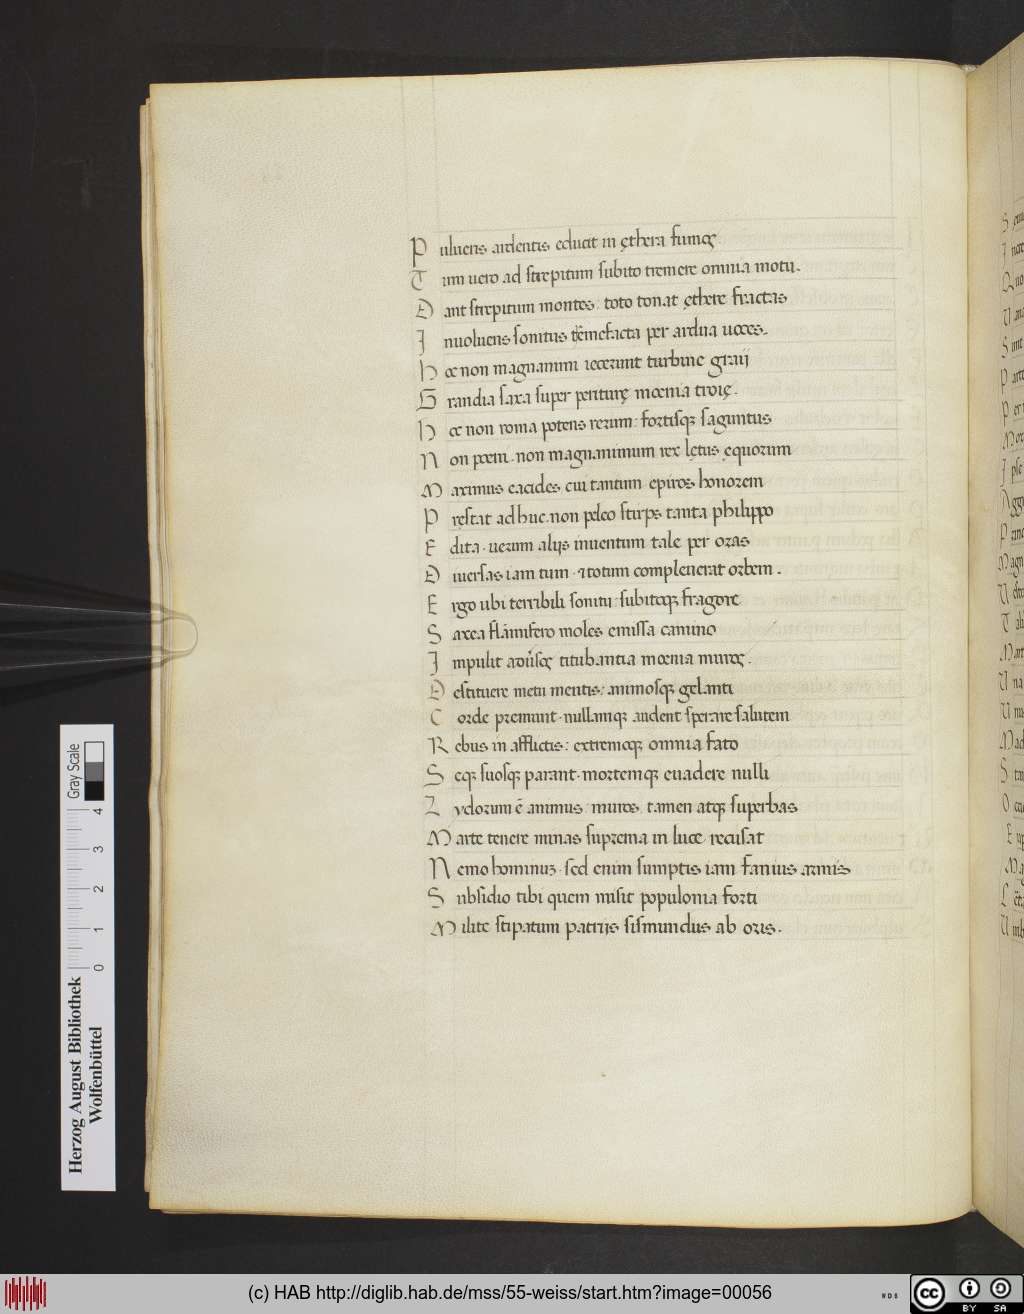 Pulueris ardentis educit in ęthera fumos
Tum uero ad strepitum subito tremere omnia motu.
Dant strepitum montes: toto tonat ęthere fractas
Inuoluens sonitus tremefacta per ardua uoces.
Hęc non magnanimi iecerunt turbine graii
Grandia saxa super periturę mœnia troię.
Hęc non roma potens rerum: fortisq; saguntus
Non pœni. non magnanimum rex lętus ęquorum
Maximus eacides cui tantum epiros honorem
Pręstat adhuc. non peleo stirps tanta philippo
Edita. uerum alijs inuentum tale per oras
Diuersas iam tum. & totum compleuerat orbem.
Ergo ubi terribili sonitu: subitoq; fragore
Saxea flãmifero moles emissa camino
Impulit aduersos titubantia mœnia muros.
Destituere metu mentis: animosq; gelanti
Corde premunt. nullamq; audent sperare salutem
Rebus in afflictis: extremoq; omnia fato
Seq; suosq; parant. mortemq; euadere nulli
Lydorum ẽ animus: muros. tamen atq; superbas
Marte tenere minas suprema in luce recusat
Nemo hominuȝ. sed enim sumptis iam fanius armis
Subsidio tibi quem misit populonia forti
Milite stipatum patrijs sismundus ab oris.
Herzog August Bibliothek
Wolfenbüttel
0 1 2 3 4
Gray Scale
(c) HAB http://diglib.hab.de/mss/55-weiss/start.htm?image=00056
cc BY SA